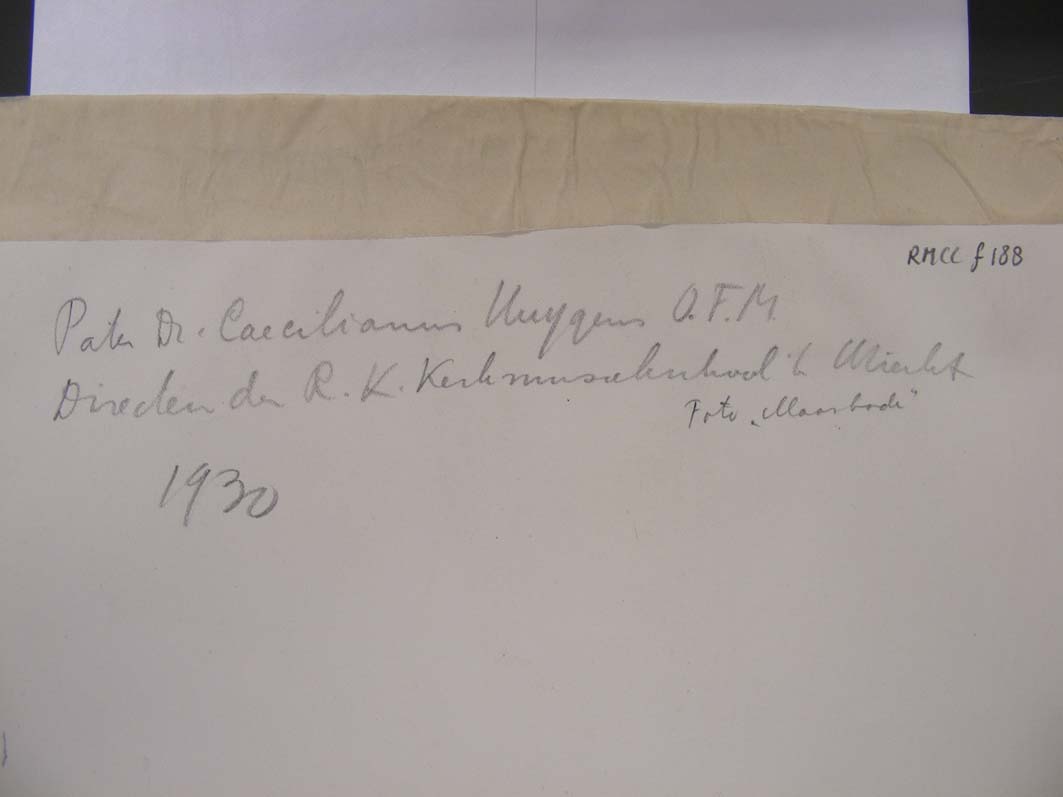 RMCC f 188
Pater Dr. Caecilianus Huygens O.F.M.
Directeur der R. K. Kerkmuziekschool te Utrecht
Foto „Maasbode"
1930